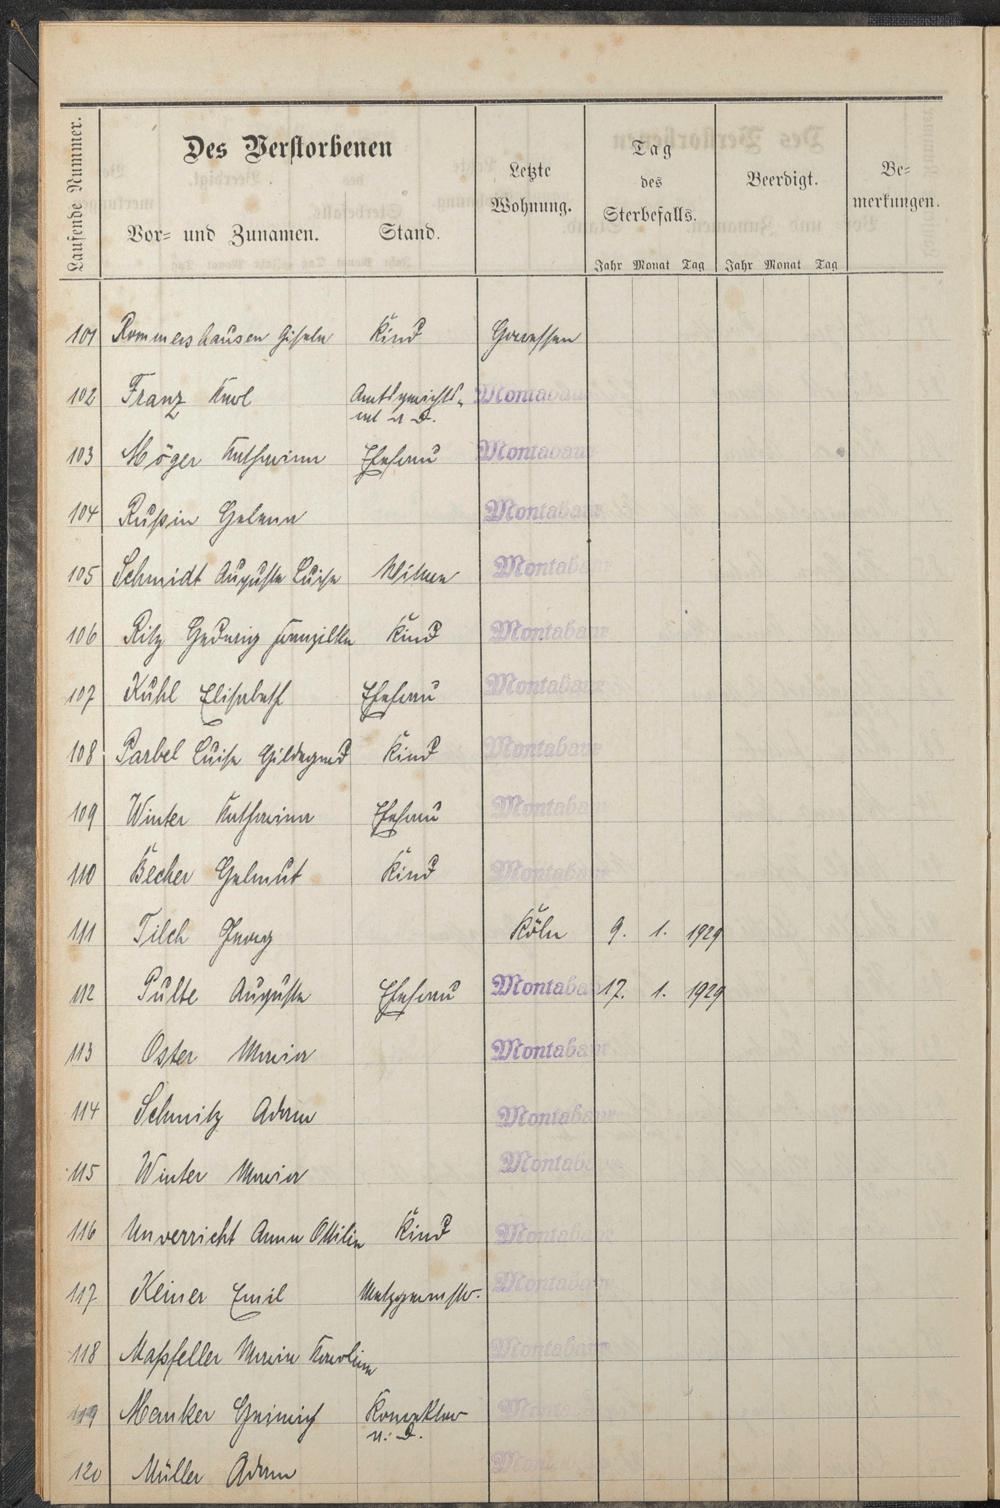 Laufende Nummer.
Des Verstorbenen
Vor= und Zunamen.
Stand.
Letzte
Wohnung.
Tag
des
Sterbefalls.
Jahr Monat Tag
Beerdigt.
Jahr Monat Tag
Be=
merkungen.
101 Rommershausen Gisela Kind
102 Franz Karl Amtsgerichts- Montabaur
rat a. D.
103 Möger Katharina Ehefrau Montabaur
104 Rußin Helena Montabaur
105 Schmidt Auguste Luise Witwe Montabaur
106 Ritz Hedwig Franziska Kind Montabaur
107 Kühl Elisabeth Ehefrau Montabaur
108 Parbel Luise Hildegard Kind Montabaur
109 Winter Katharina Ehefrau Montabaur
110 Becher Helmut Kind Montabaur
111 Tilch Georg Köln 9. 1. 1929
112 Pulte Auguste Ehefrau Montabaur 17. 1. 1929
113 Oster Maria Montabaur
114 Schmitz Adam Montabaur
115 Winter Maria Montabaur
116 Unverricht Anna Ottilie Kind Montabaur
117 Keiner Emil Metzgermstr. Montabaur
118 Maßfeller Maria Karoline Montabaur
119 Manker Heinrich Konrektor Montabaur
a. D.
120 Müller Adam Montabaur